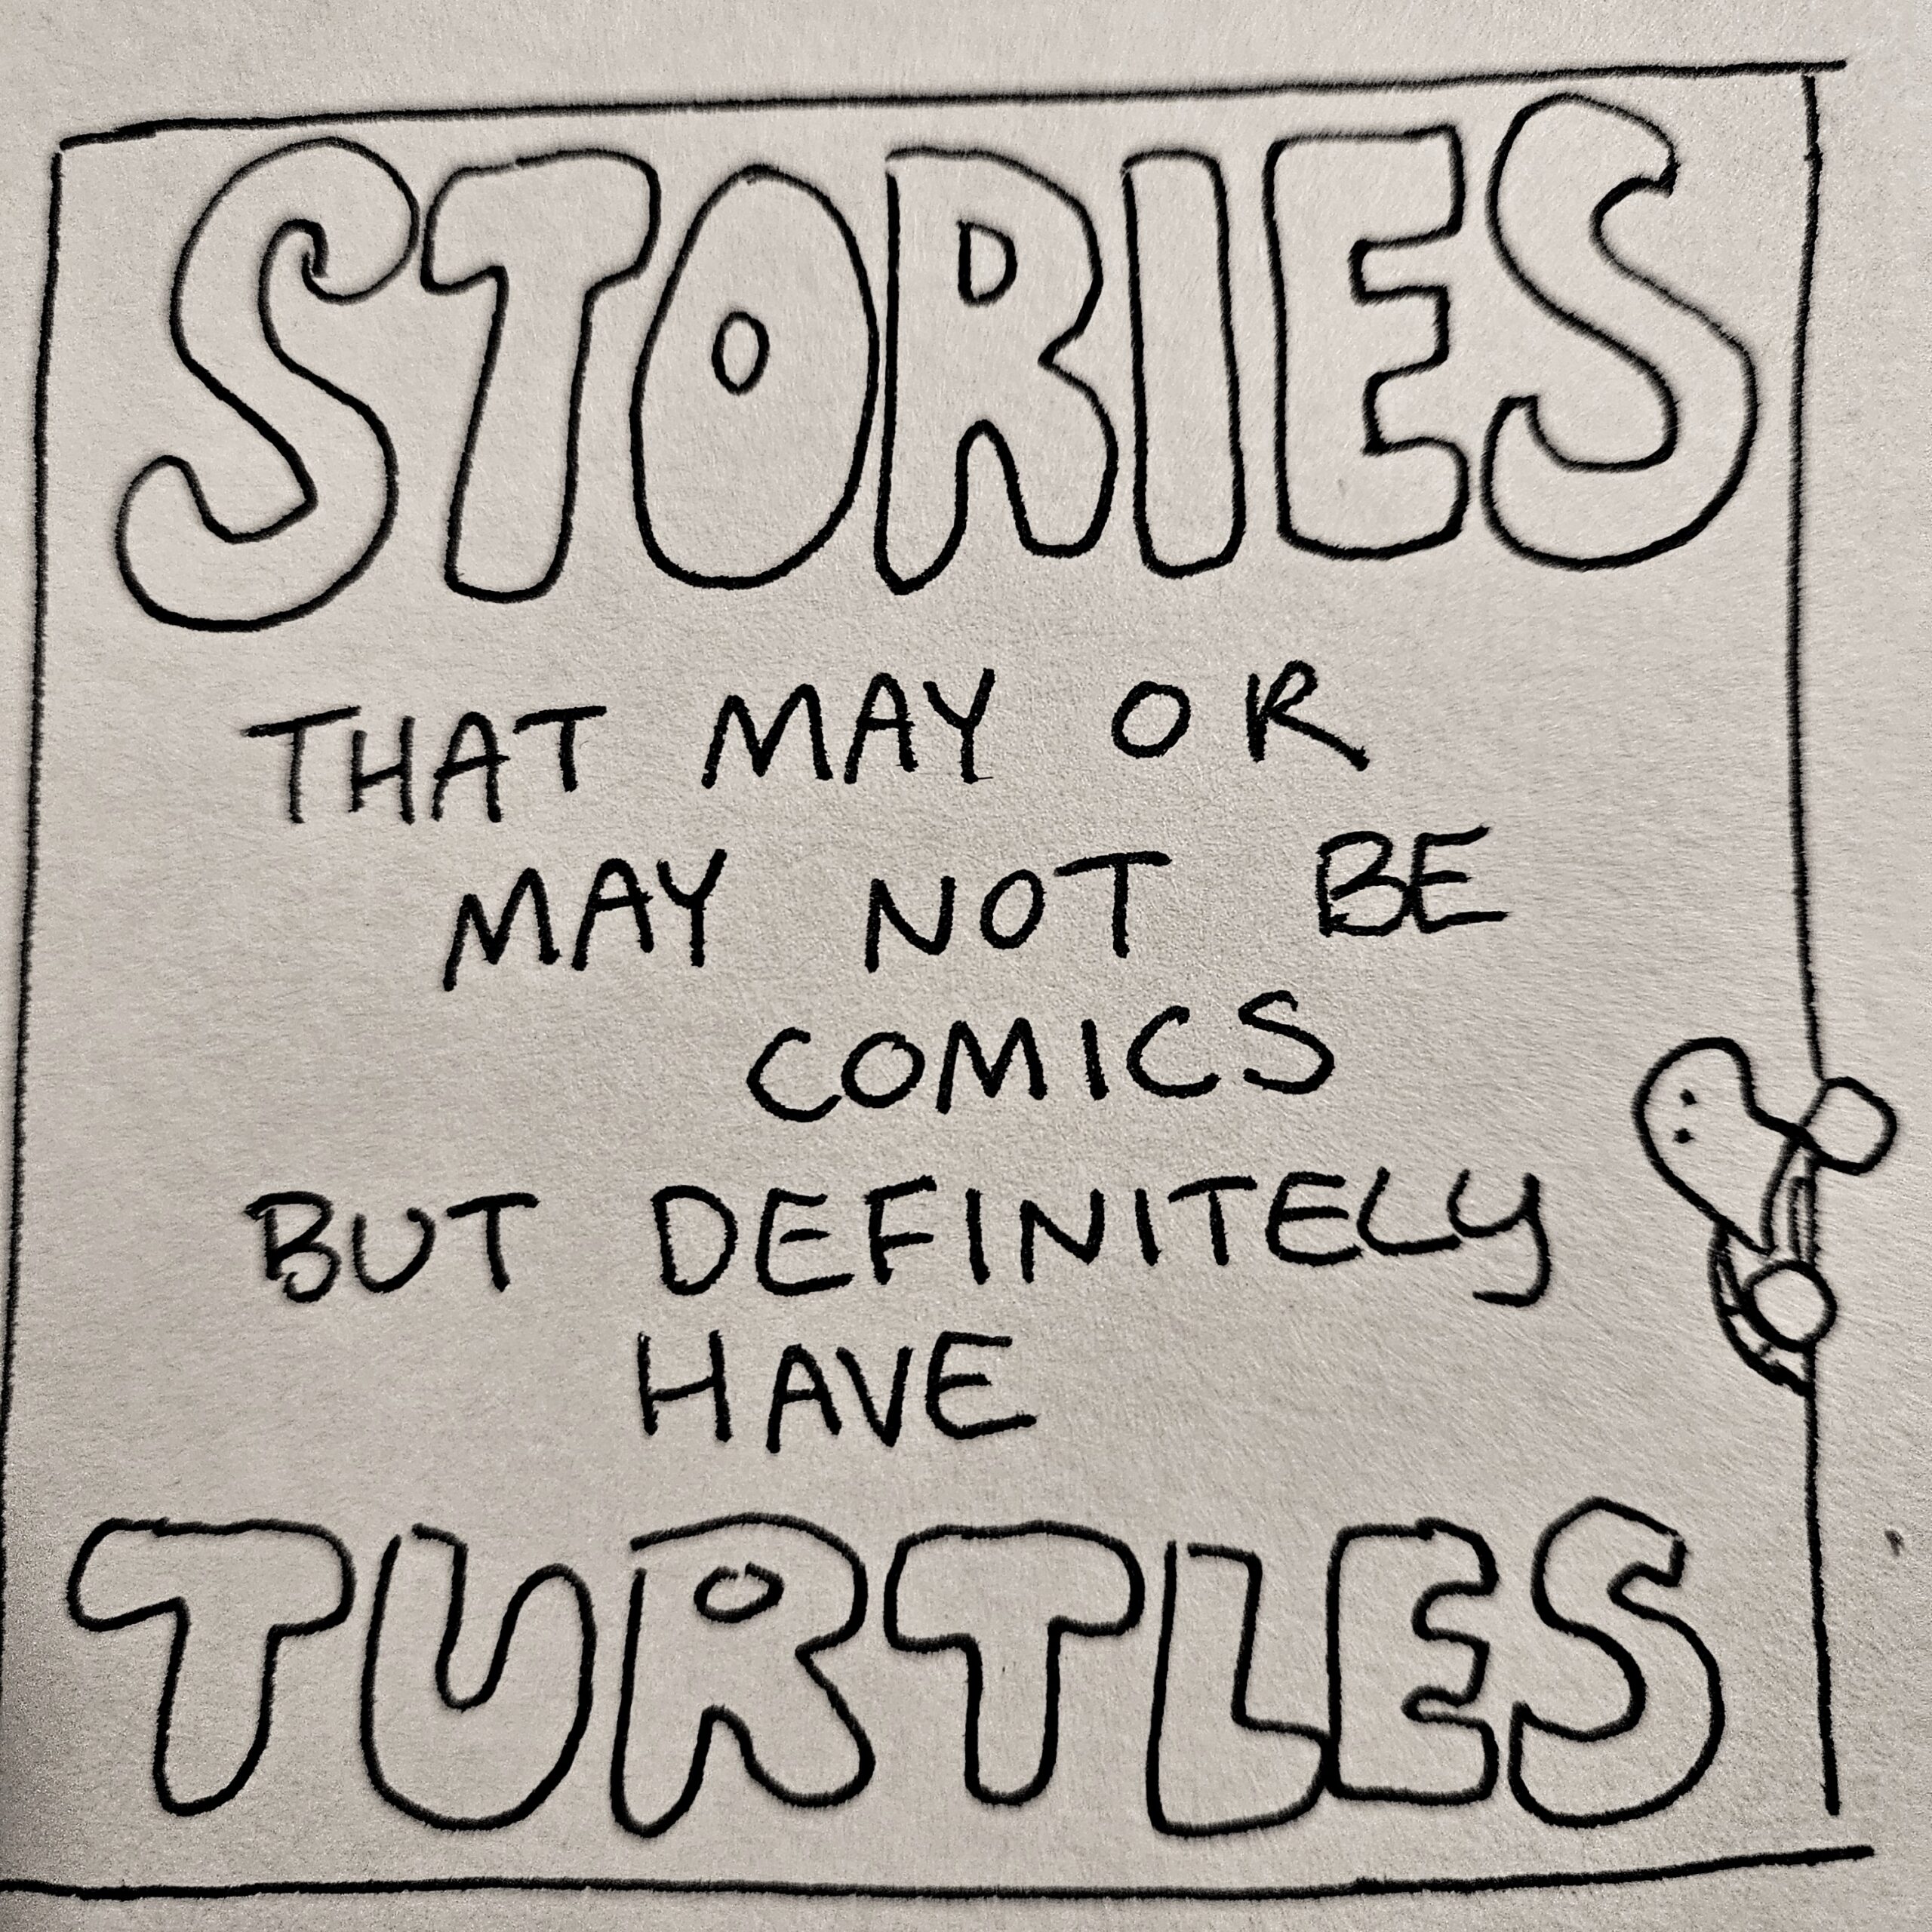 STORIES
THAT MAY OR
MAY NOT BE
COMICS
BUT DEFINITELY
HAVE
TURTLES